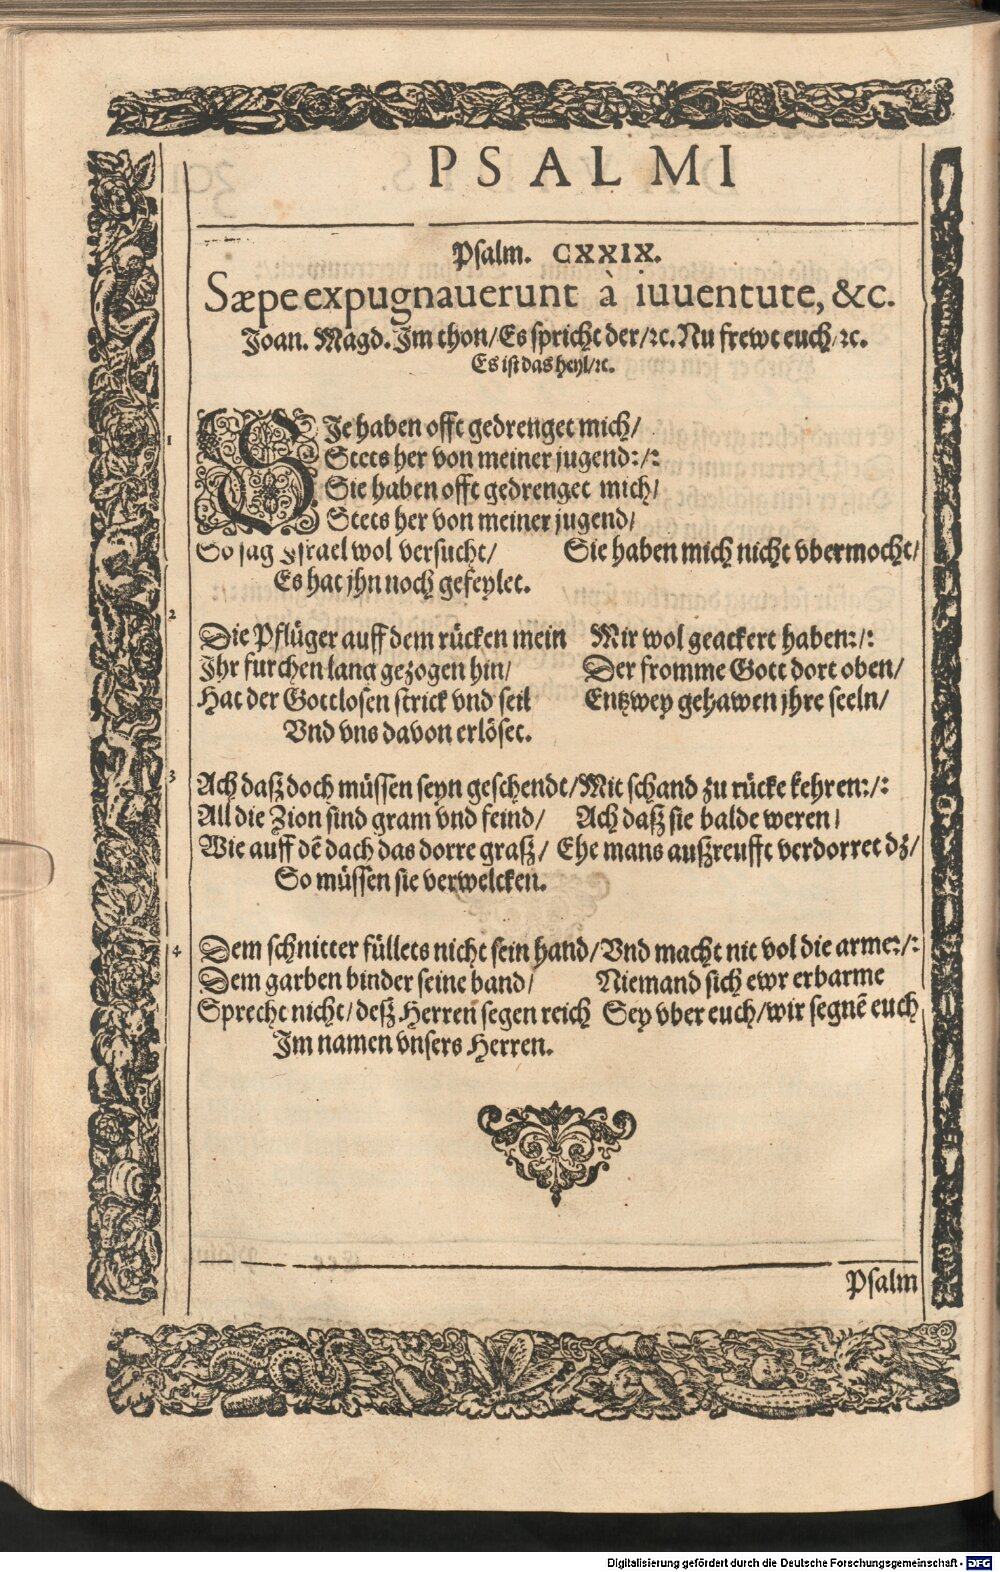 PSALMI
Psalm. CXXIX.
Sæpe expugnauerunt à iuuentute, &c.
Joan. Magd. Im thon/ Es spricht der/ ꝛc. Nu frewt euch/ ꝛc.
Es ist das heyl/ ꝛc.
1 SIe haben offt gedrenget mich/
Stets her von meiner jugend:/:
Sie haben offt gedrenget mich/
Stets her von meiner jugend/
So sag Israel wol versucht/ Sie haben mich nicht vbermocht/
Es hat jhn noch gefeylet.
2
Die Pflüger auff dem rücken mein Mir wol geackert haben:/:
Ihr furchen lang gezogen hin/ Der fromme Gott dort oben/
Hat der Gottlosen strick vnd seil Entzwey gehawen jhre seeln/
Vnd vns davon erlöset.
3 Ach daß doch müssen seyn geschendt/ Mit schand zu rücke kehren:/:
All die Zion sind gram vnd feind/ Ach daß sie balde weren/
Wie auff dē dach das dorre graß/ Ehe mans außreufft verdorret dz/
So müssen sie verwelcken.
4 Dem schnitter füllets nicht sein hand/ Vnd macht nit vol die arme:/:
Dem garben binder seine band/ Niemand sich ewr erbarme
Sprecht nicht/ deß Herren segen reich Sey vber euch/ wir segnē euch
Im namen vnsers Herren.
Psalm
Digitalisierung gefördert durch die Deutsche Forschungsgemeinschaft - DFG